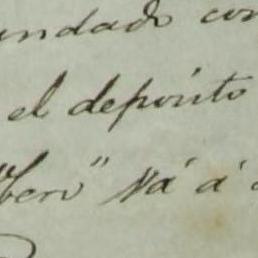 undado con
el depósito
ben" Vá á